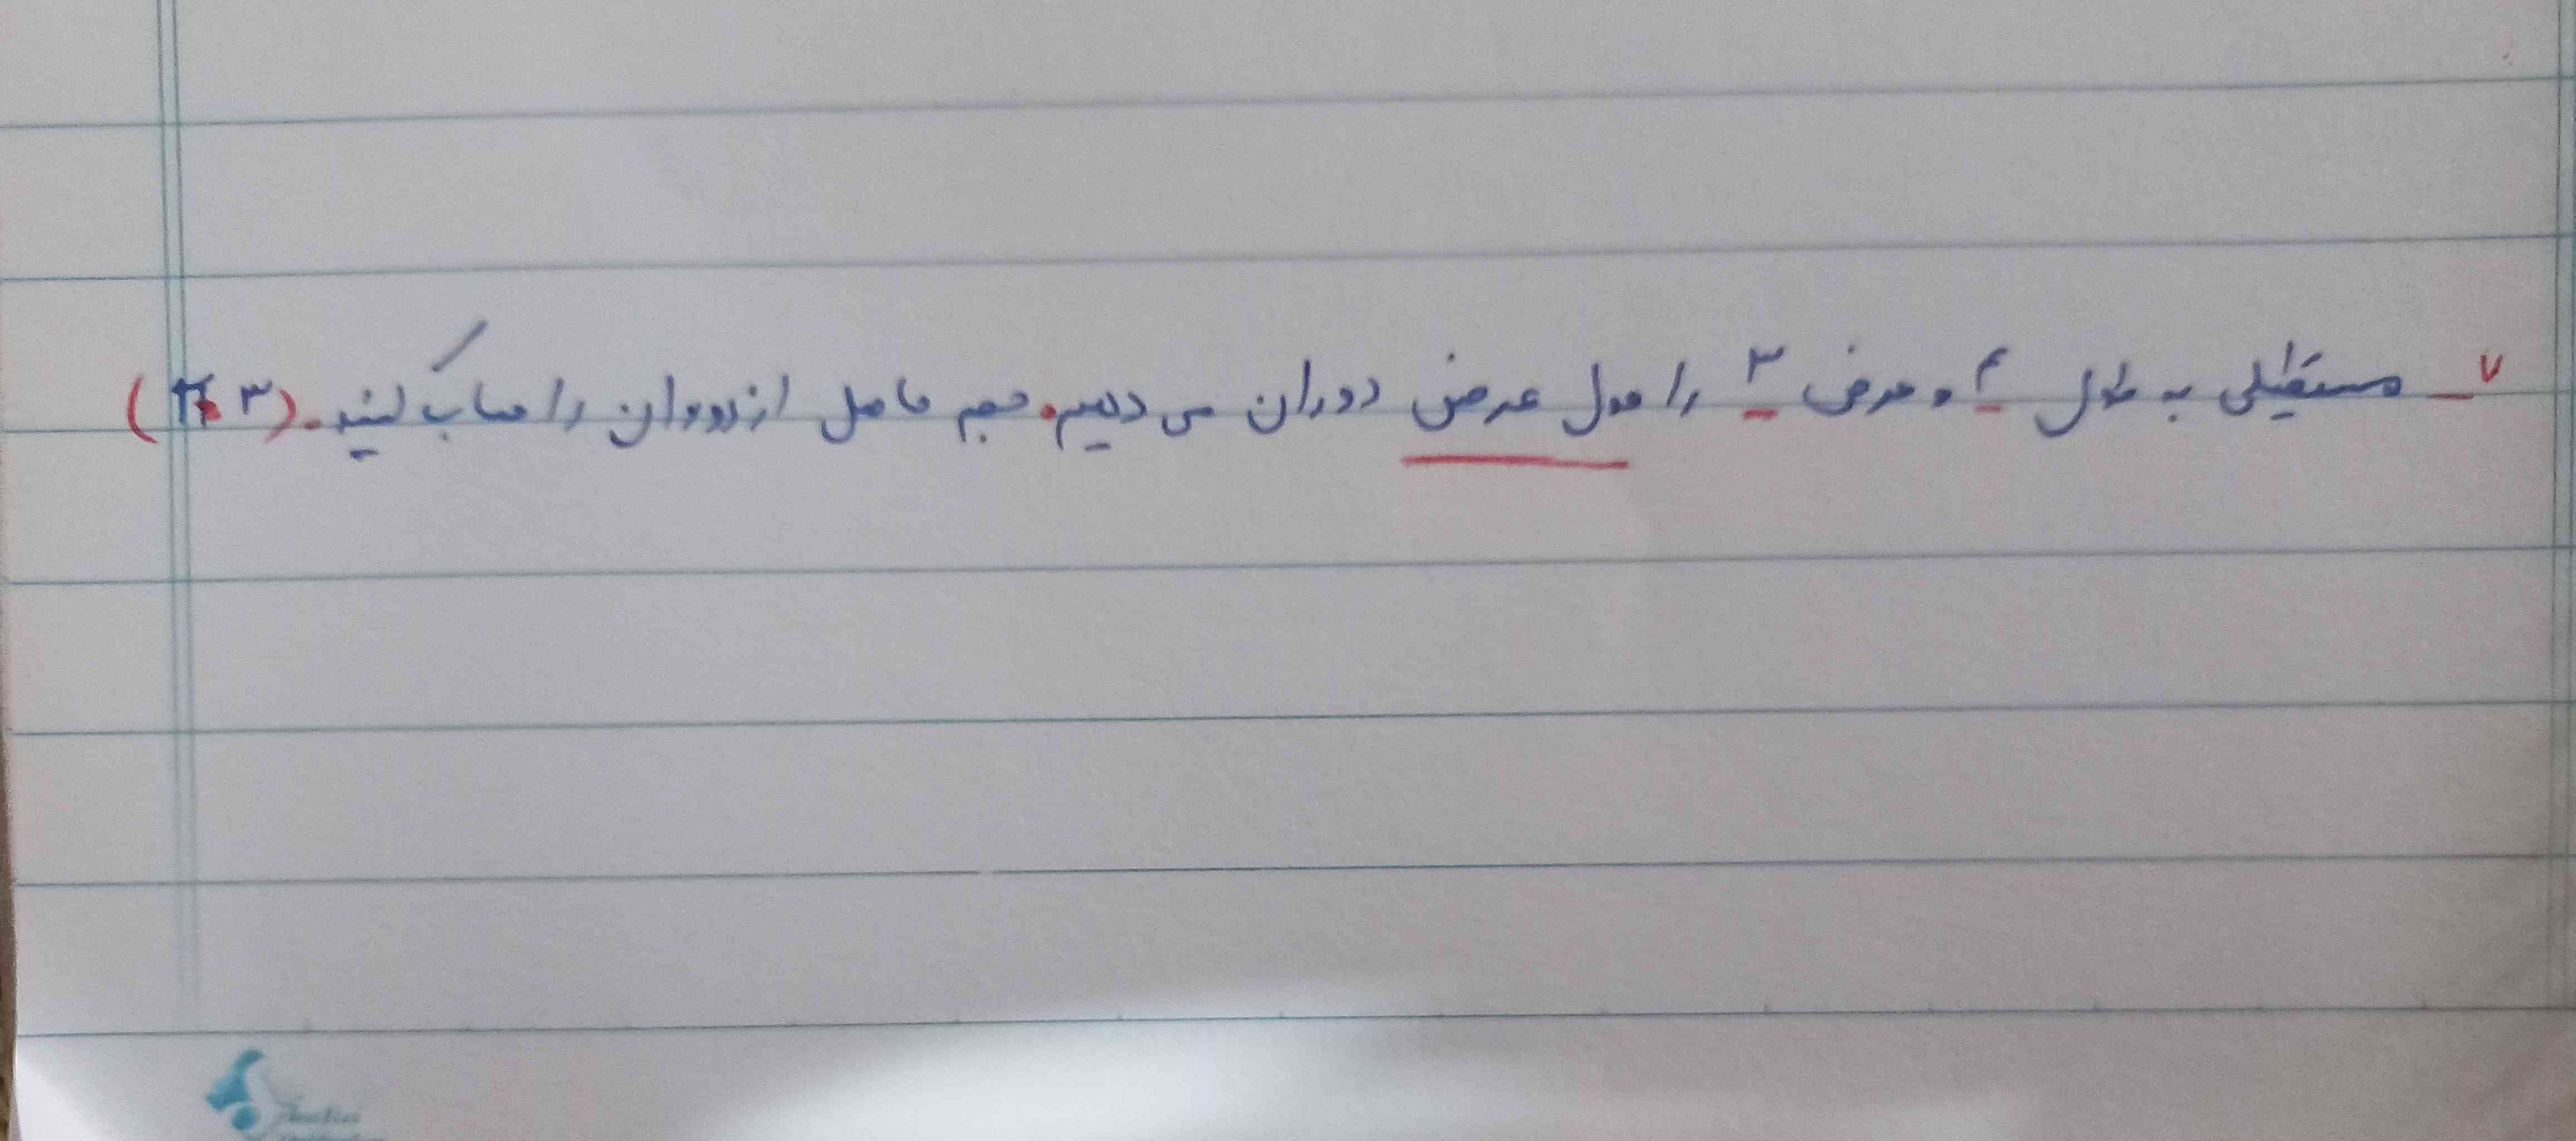 ۷_ مستطیلی به طول ۴ و عرض ۳ را حول عرض دوران می دهیم. حجم حاصل از دوران را حساب کنید. (π≈۳)